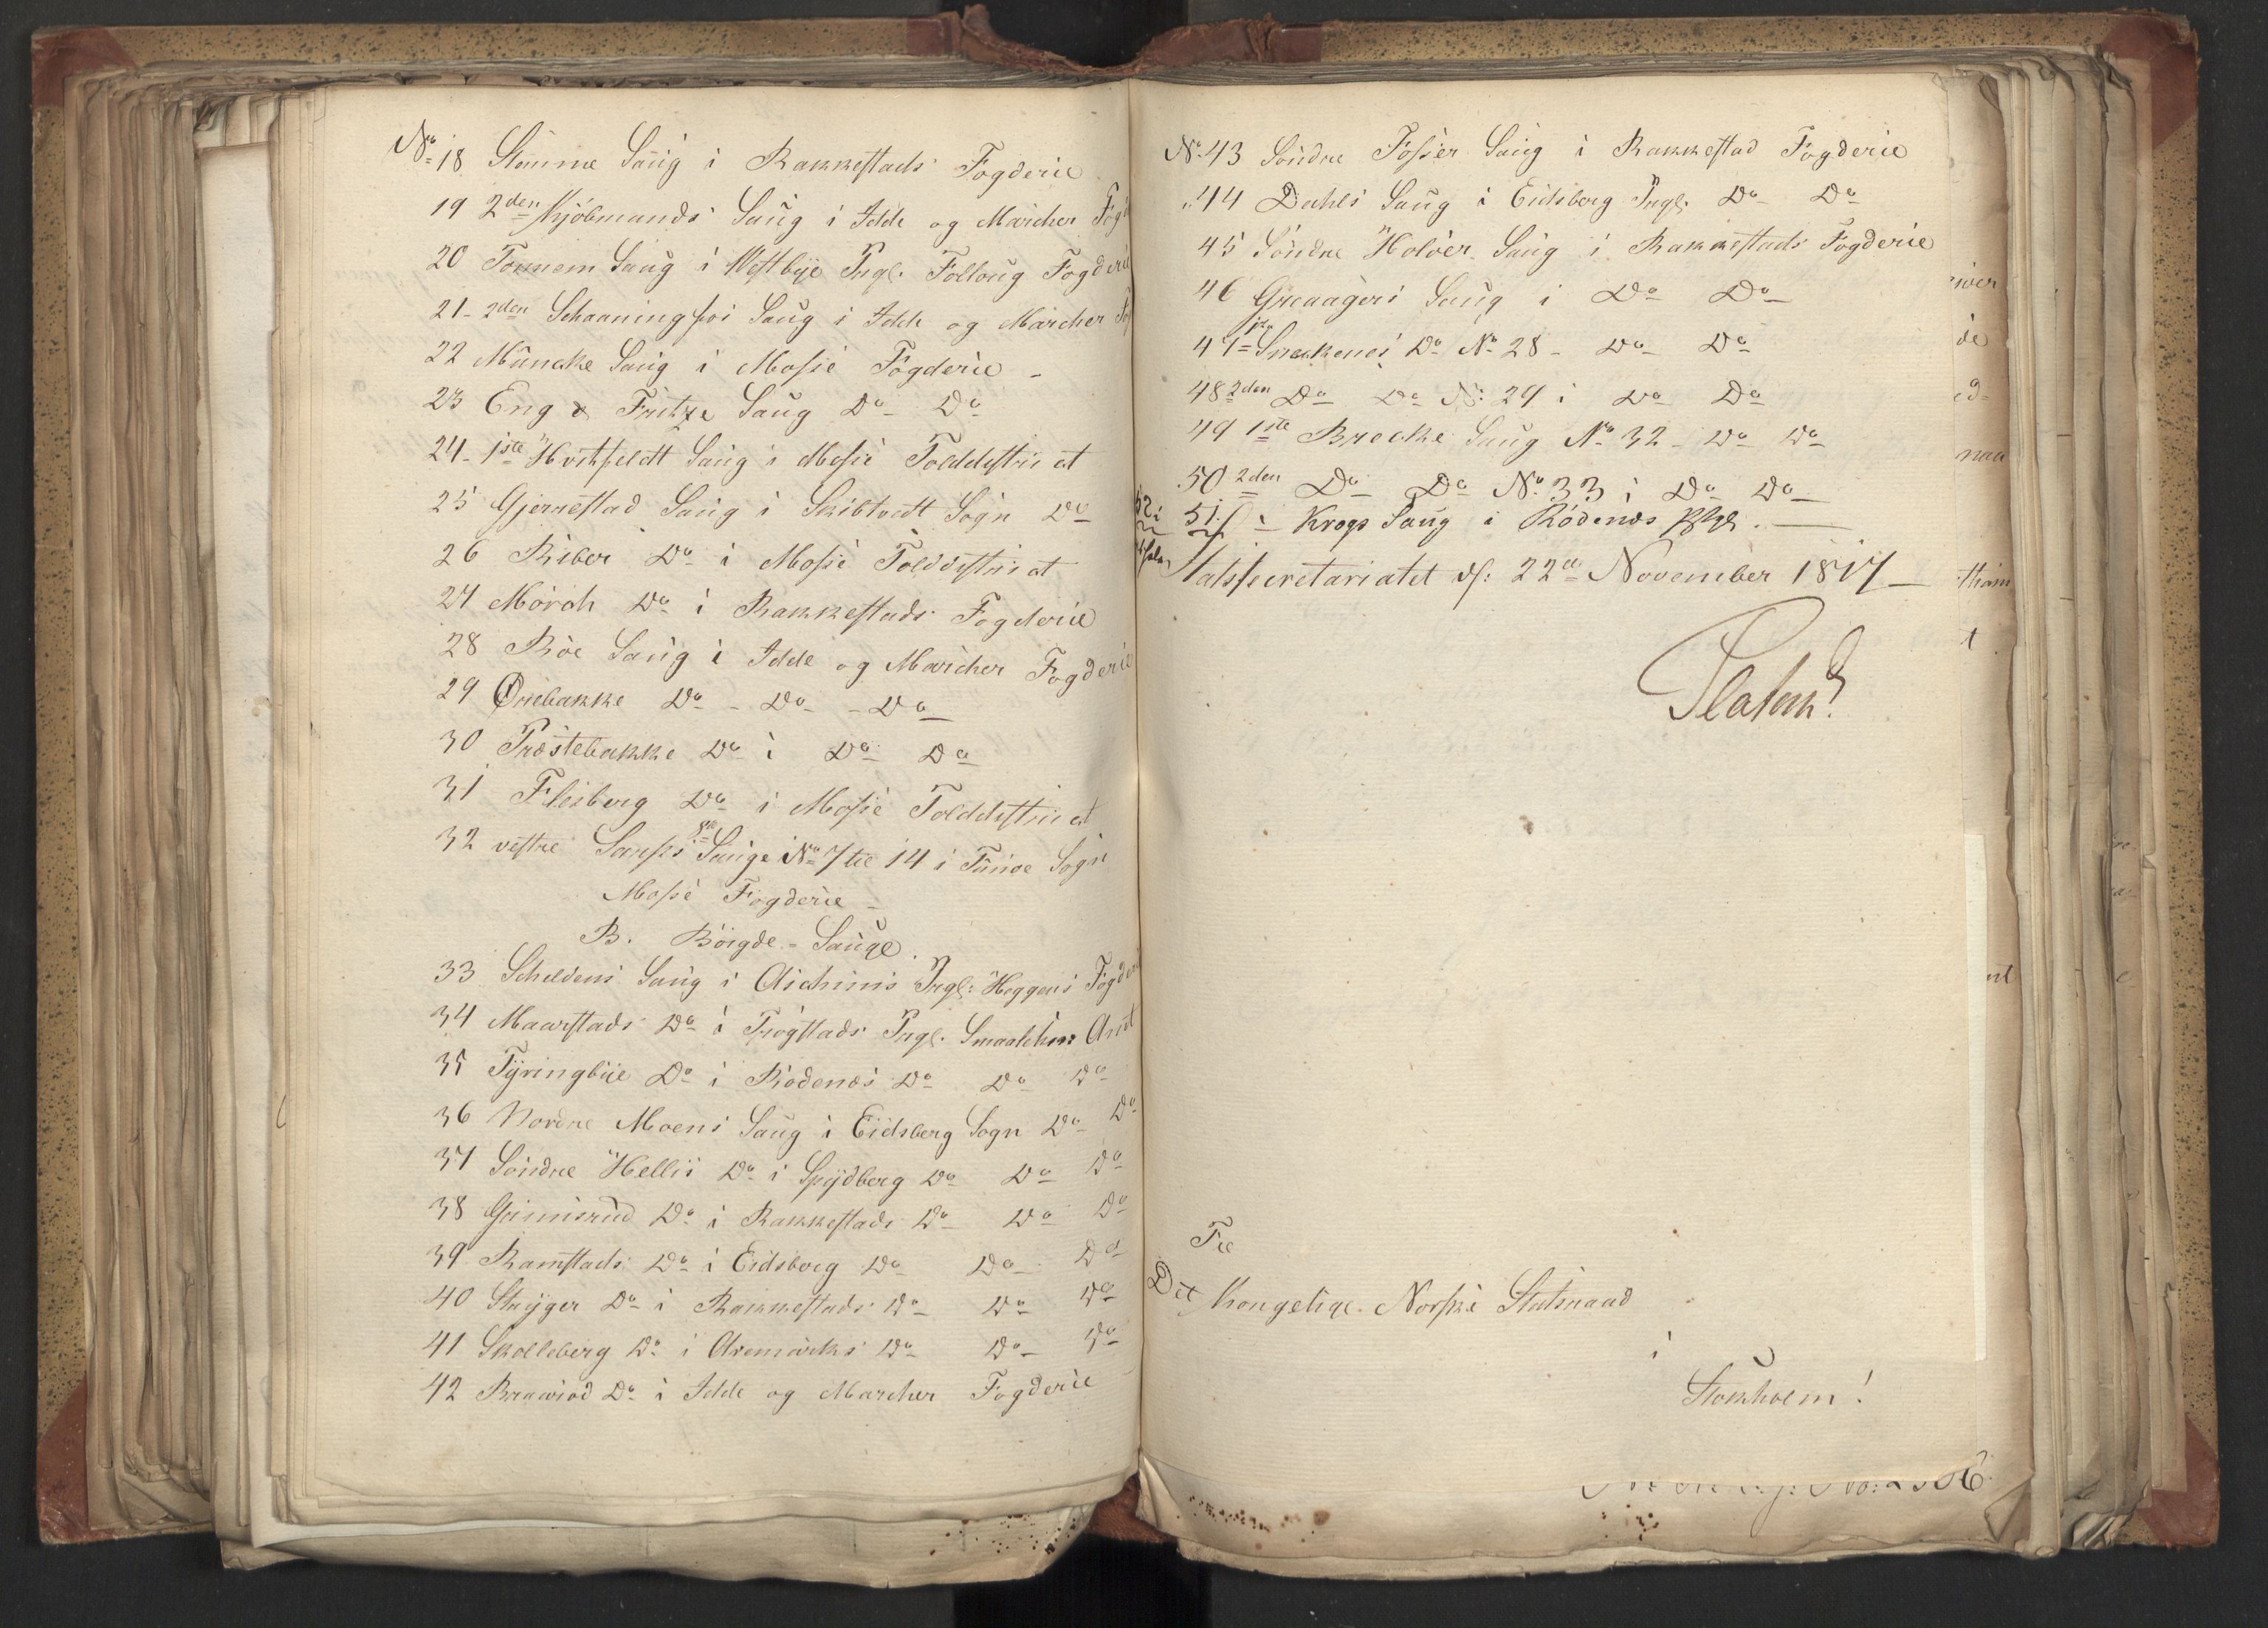 No 18 Stümne Saug i Rakkestads Fogderie
19 2den Kjöbmands Saug i Idde og Marcher Fog
20 Tonnem Saug i Westbye Prgl. Folloug Fogderie
21 2den Schaaningfos Saug i Idde og Marcher
22 Müncke Saug i Mosse Fogderie
23 Eng & Fritze Saug Do Do
24 1ste Hvitfeldt Saug i Mosse Tolddistrict
25 Gjernestad Saug i Skibtvedt Sogn Do
26 Riber Do i Mosse Tolddistrict
27 Mörch Do i Rakkestads Fogderie
28 Röe Saug i Idde og Marcher Fogderie
29 Örnebakke Do Do Do
30 Præstebakke Do i Do Do
31 Flesberg Do i Mosse Tolddistrict
32 vestre Sarps Sauge No 7 til 14 i Tunöe Sogn
Mosse Fogderie
B. Böigde-Sauge.
33 Scheldens Saug i Aschims Prgl: Heggens Fogde
34 Maarstads Do i Trögstads Prgl. Smaalehns Amt
35 Tyringbye Do i Rödenæs Do Do Do
36 Nordre Moens Saug i Eidsberg Sogn Do Do
37 Söndre Hellis Do i Spydberg Do Do Do
38 Grimsrud Do i Rakkestads Do Do Do
39 Ramstads Do i Eidsberg Do Do Do
40 Stryger Do i Rakkestads Do Do Do
41 Skolleberg Do i Aremarks Do Do Do
42 Do i Idde og Marcher Fogderie
No 43 Söndre Fosser Saug i Rakkestad Fogderie
44 Dahls Saug i Eidsberg Prgl. Do Do
45 Söndre Holöer Saug i Rakkestads Fogderie
46 Greaagers Saug i Do Do
47 Snekenes Do No 28 Do Do
48 2den Do Do No: 29 i Do Do
49 1ste Brecke Saug No 32 Do Do
50 2den Do Do No 33 i Do Do
51 Krogs Saug i Rödenæs
Statssecretariatet d: 22de November 1817
Platen
Til
Det Kongelige Norske Statsraad
i
Stokholm!